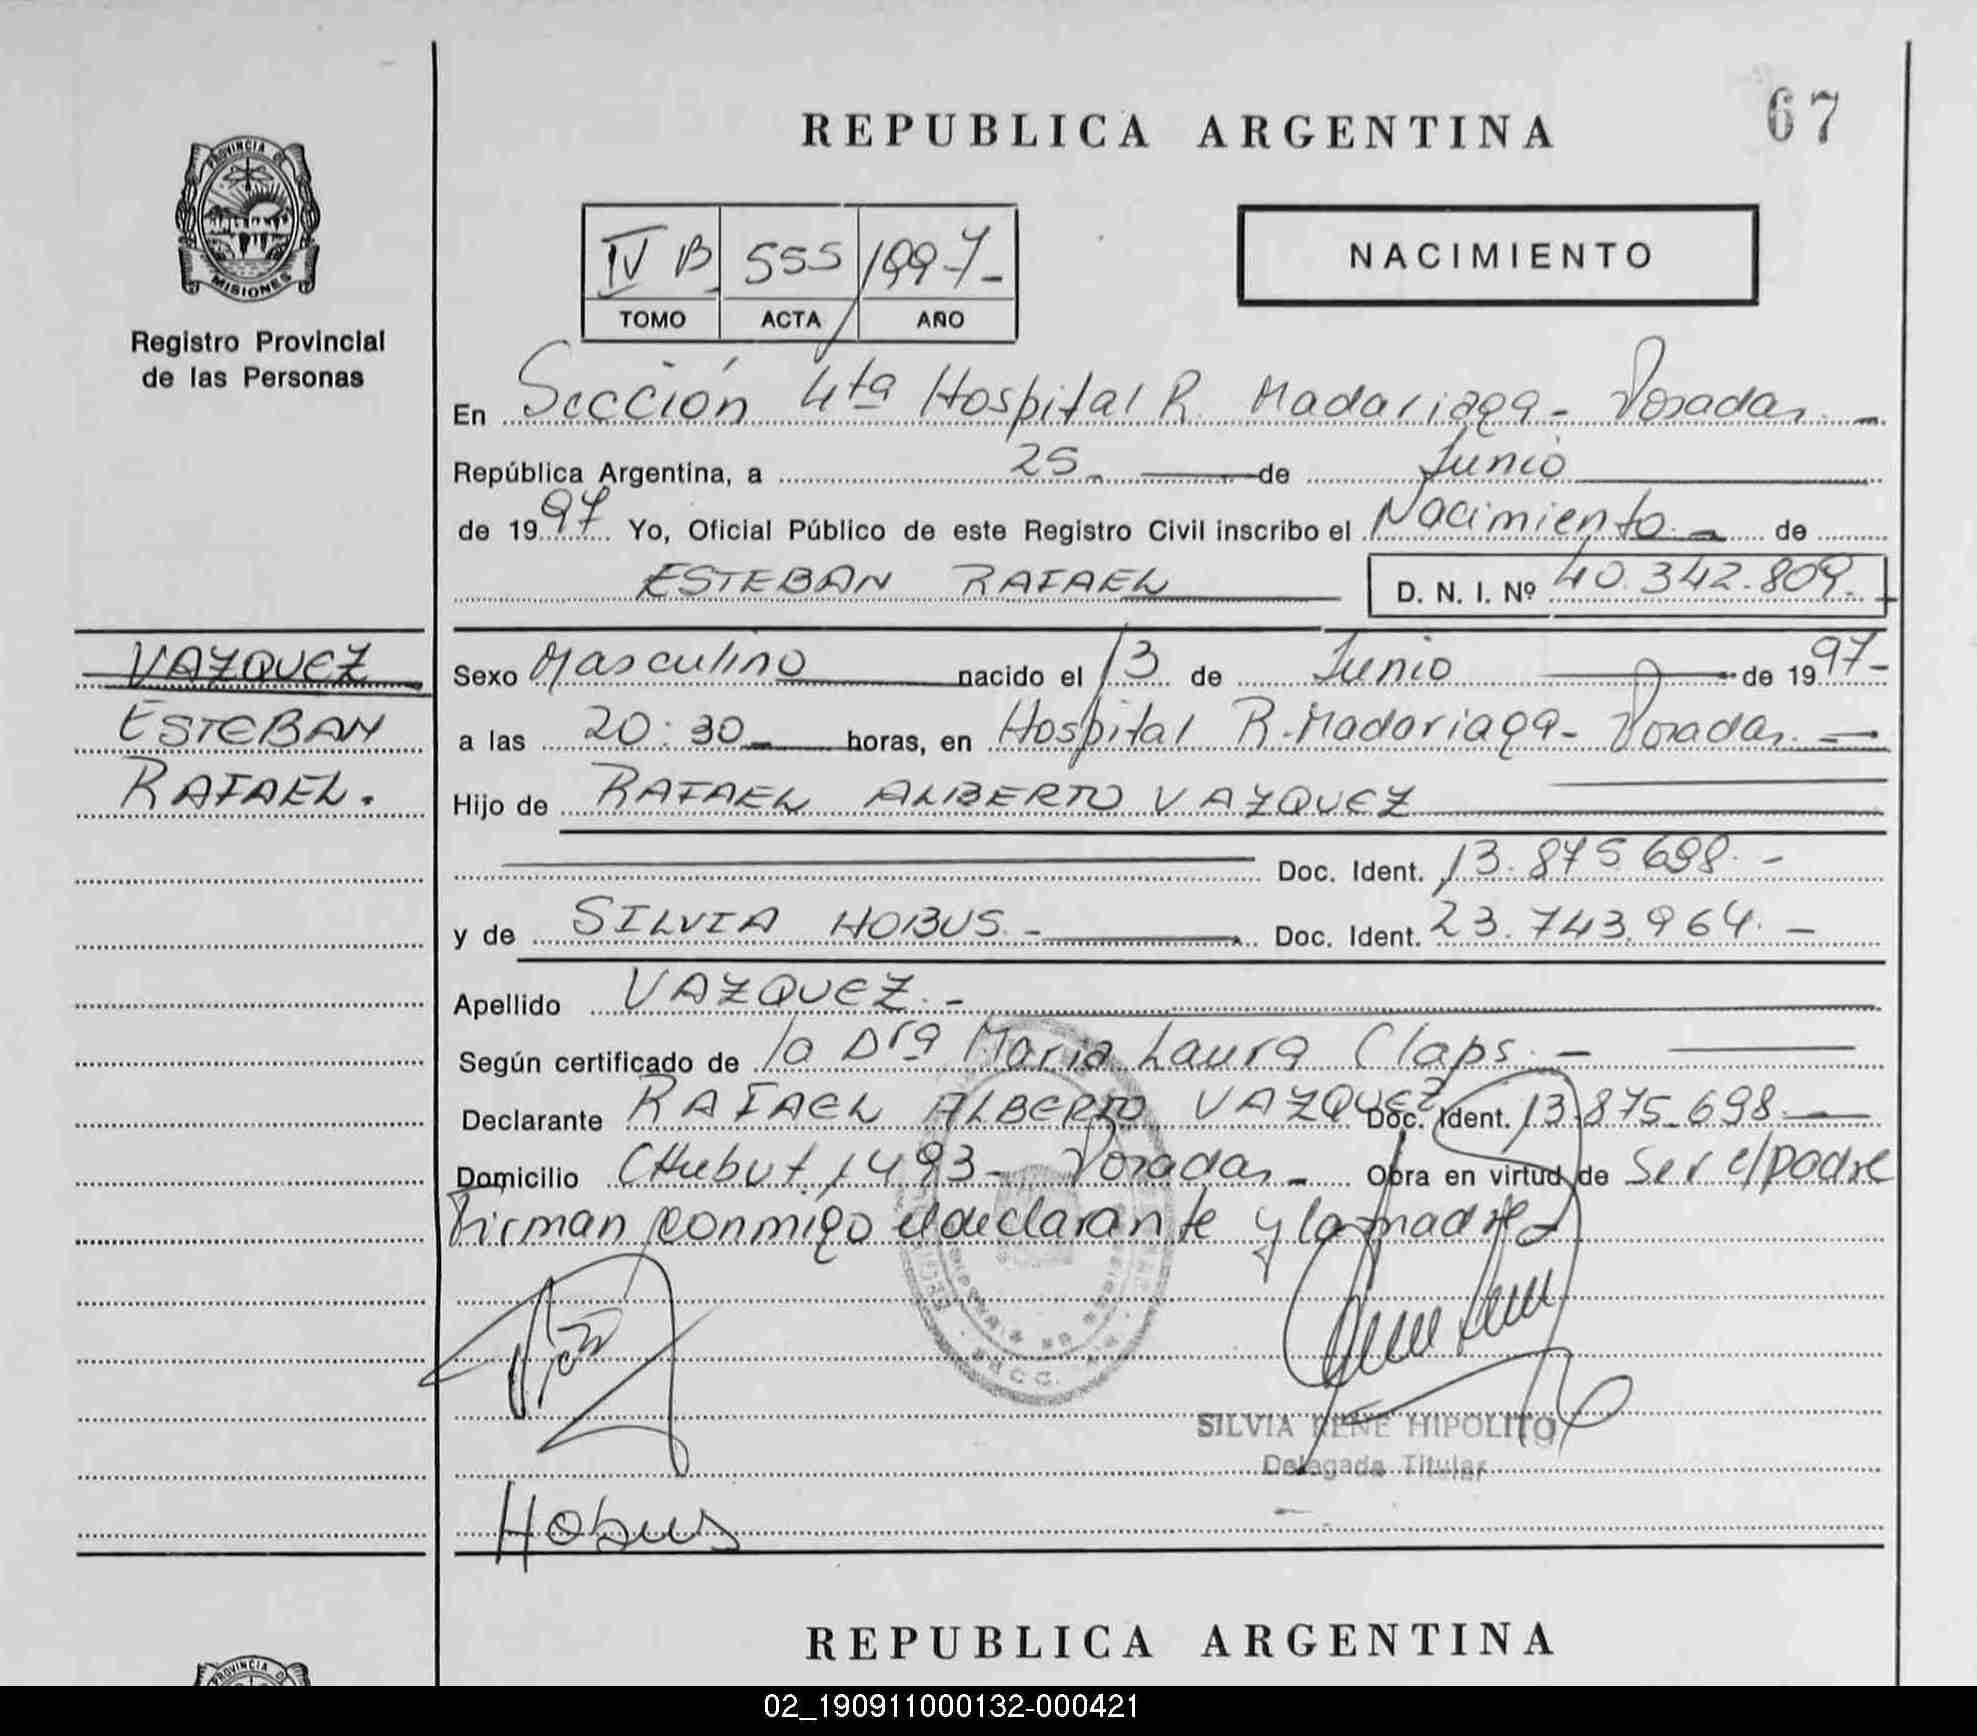 REPUBLICA ARGENTINA
67
PROVINCIA DE
MISIONES
Registro Provincial
de las Personas
IV B 555 1997-
TOMO ACTA AÑO
NACIMIENTO
En Sección 4ta Hospital R. Madariaga - Posadas. -
República Argentina, a 25. de Junio
de 1997 Yo, Oficial Público de este Registro Civil inscribo el Nacimiento - de
ESTEBAN RAFAEL D. N. I. Nº 40.342.809.-
VAZQUEZ
ESTEBAN
RAFAEL.
Sexo Masculino nacido el 13 de Junio de 1997-
a las 20:30 - horas, en Hospital R. Madariaga - Posadas. -
Hijo de RAFAEL ALBERTO VAZQUEZ
Doc. Ident. 13.875698. -
y de SILVIA HOBUS. - Doc. Ident. 23.743.964. -
Apellido VAZQUEZ. -
Según certificado de la Dra Maria Laura Claps. -
Declarante RAFAEL ALBERTO VAZQUEZ Doc. Ident. 13.875.698.
Domicilio CHubut 1493 - Posadas - Obra en virtud de ser el padre
Firman conmigo el declarante y la madre-
SILVIA RENE HIPOLITO
Delegada Titular
Hobus
REPUBLICA ARGENTINA
PROVINCIA DE
02_190911000132-000421